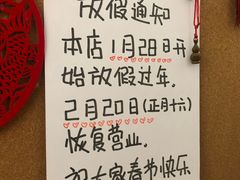 放假通知
本店1月28日开
始放假过年.
2月20日(正月十六)
恢复营业.
祝大家春节快乐